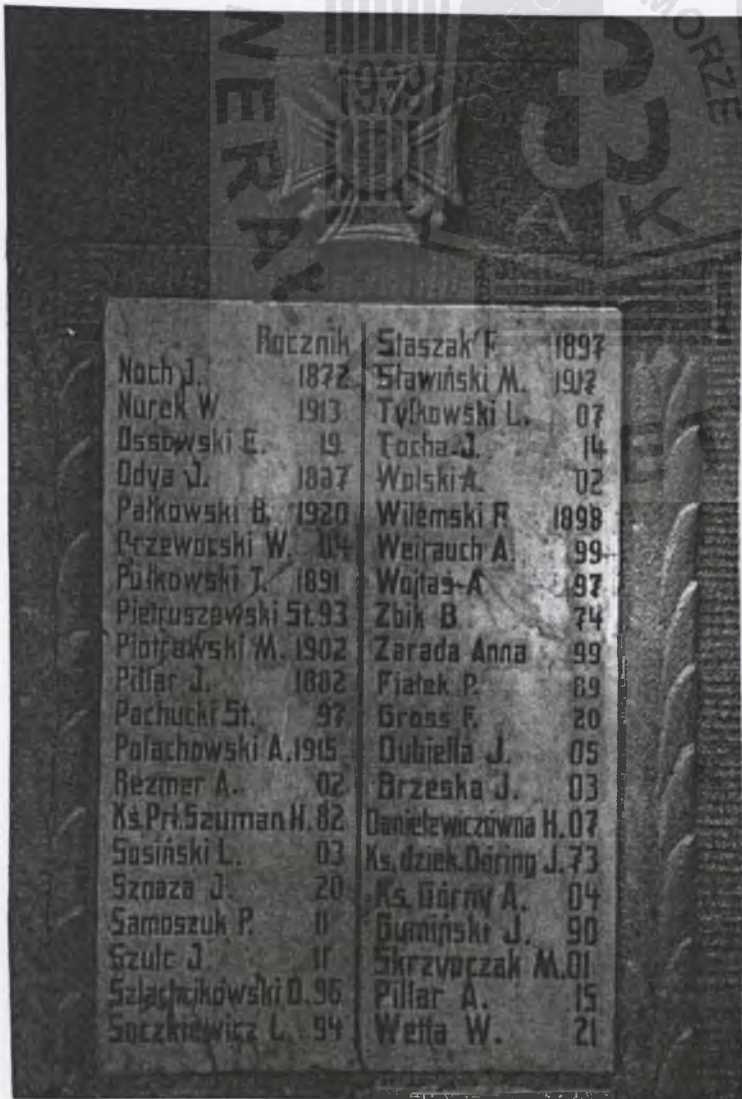 MORZE
AK
NERAŁ
1939
Rocznik
Noch J. 1872
Nurek W. 1913
Ossowski E. 19
Odya J. 1887
Pałkowski B. 1920
Przeworski W.
Pułkowski T. 1891
Pietruszewski St. 93
Piotrowski M. 1902
Pillar J. 1882
Pachucki St. 97
Polachowski A. 1915
Rezmer A. 02
Ks. Prł. Szuman H. 82
Sosiński L. 03
Sznaza J. 20
Samoszuk P. 11
Szulc J. 11
Szlachcikowski O. 96
Soczkiewicz L. 94
Staszak F. 1897
Sławiński M. 1917
Tylkowski L. 07
Tocha J. 14
Wolski A. 02
Wilemski F. 1898
Weirauch A. 99
Wojtaś A 97
Zbik B 74
Zarada Anna 99
Fiałek P. 89
Gross F. 20
Dubiella J. 05
Brzeska J. 03
Danielewiczówna H. 07
Ks. dziek. Döring J. 73
Ks. Górny A. 04
Gumiński J. 90
Skrzypczak M. 01
Pillar A. 15
Wetta W. 21